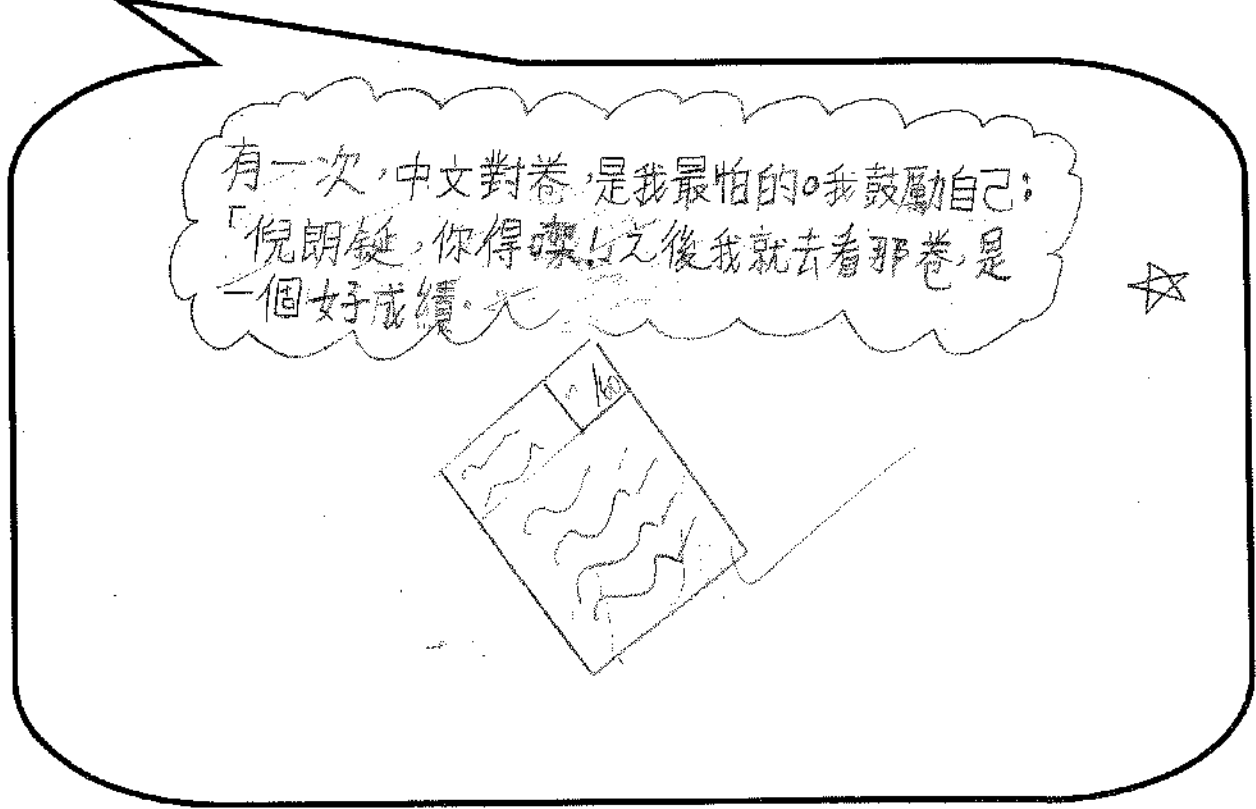 有一次，中文對卷，是我最怕的。我鼓勵自己：
「倪朗鋋，你得㗎！」之後我就去看那卷，是
一個好成績。
/100